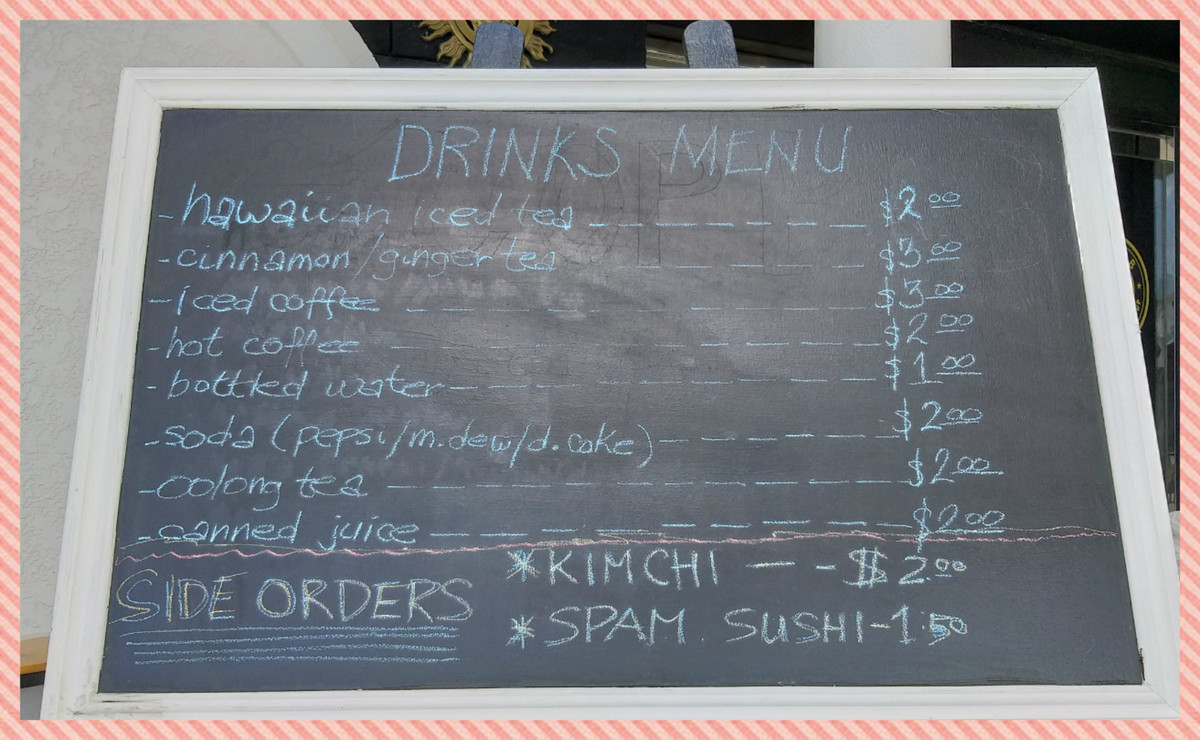 DRINKS MENU
- hawaiian iced tea - - - - - - - $2.00
- cinnamon/ginger tea - - - - - $3.00
- iced coffee - - - - - - - - - $3.00
- hot coffee - - - - - - - - - $2.00
- bottled water - - - - - - - - $1.00
- soda (pepsi/m.dew/d.coke) - - - - - - $2.00
- oolong tea - - - - - - - - - $2.00
- canned juice - - - - - - - - $2.00
SIDE ORDERS
* KIMCHI - - $2.00
* SPAM SUSHI - 1.50